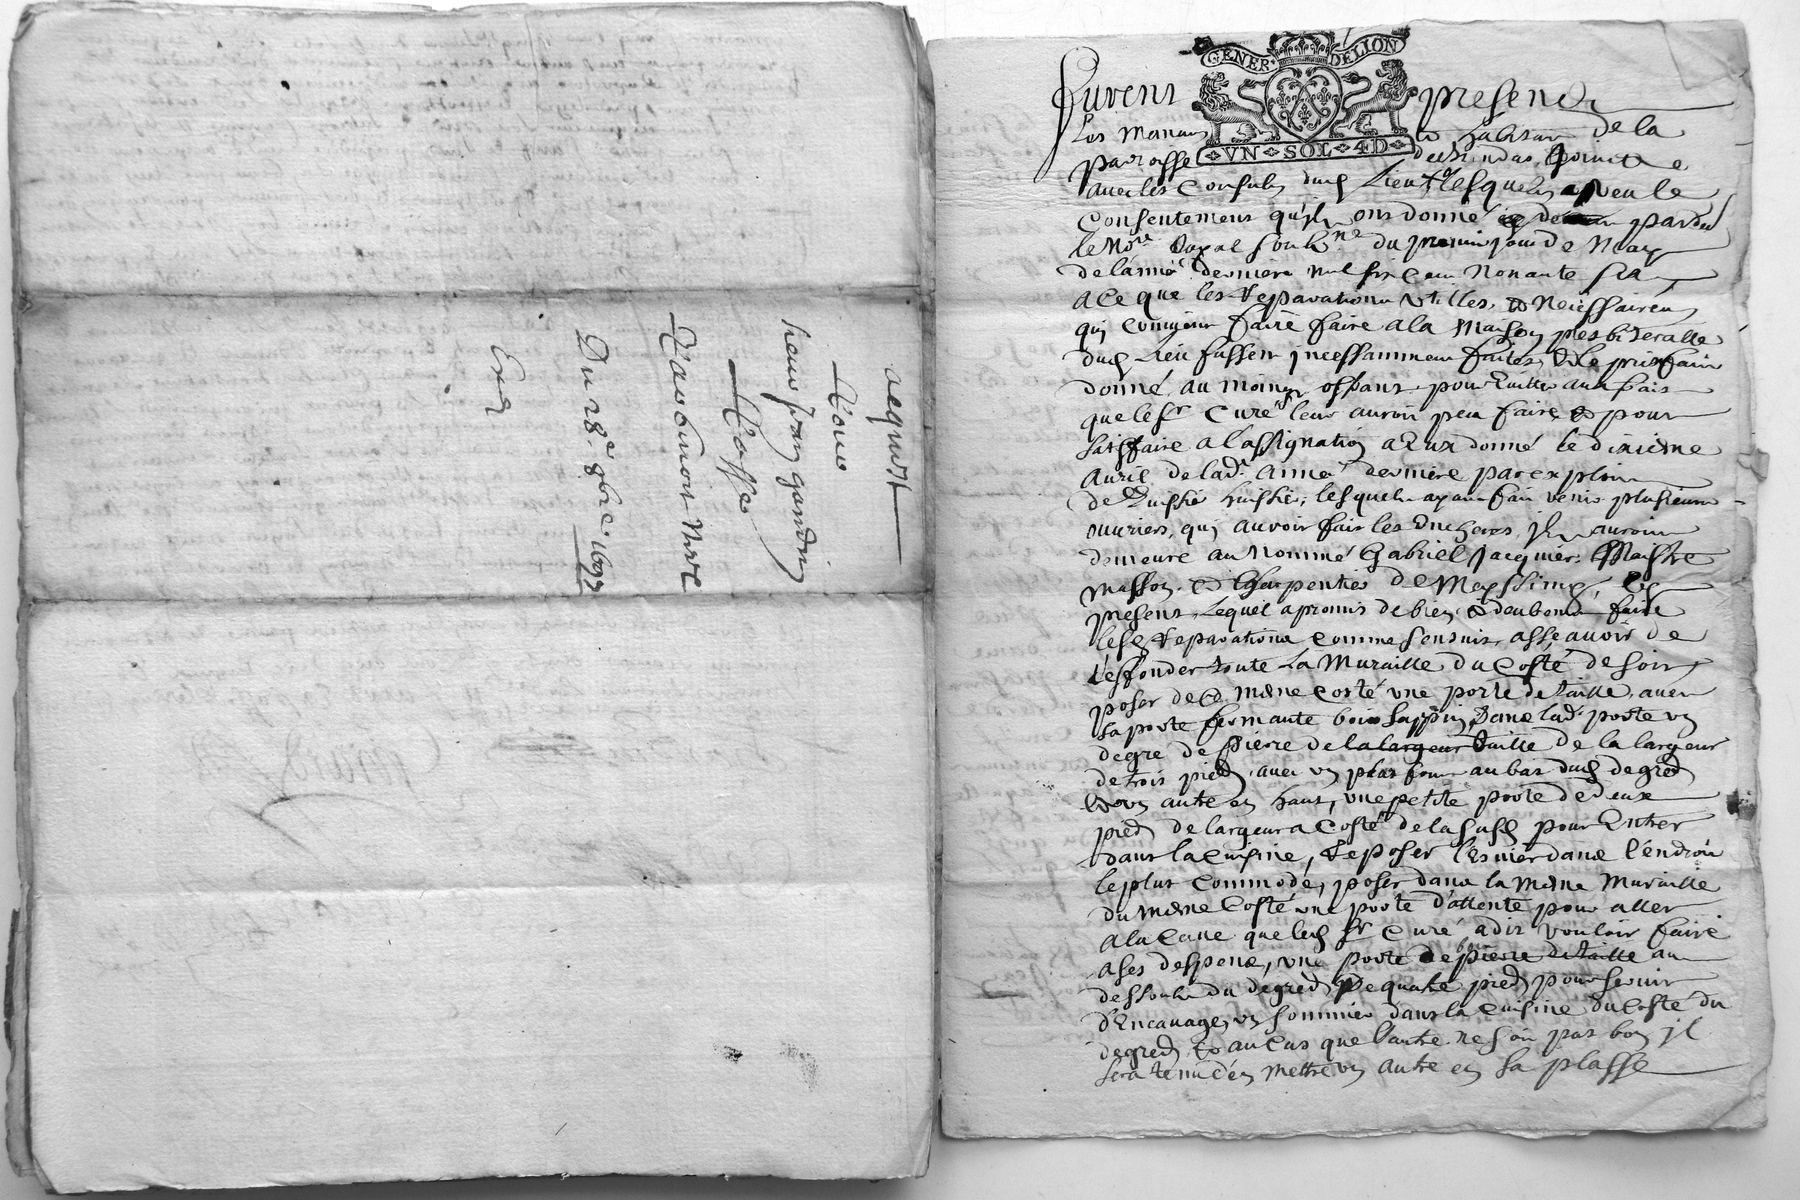 acquist
sieur Jean gondin
Du 28e 9bre 1697
GENER· DE LION
VN SOL 4D
furent presend
Les manans et habitans de la
parroisse
avec les Consuls dud Lieu lesquels veu le
Consentement qu'ils ont donné par dev
le Nore Royal soubz.ne du premier jour de May
de l'année derniere mil six cens Nonante six
a ce que les reparations utilles et Necessaires
qui convient faire faire a la Maison presbiteralle
dud Lieu fussent incessamment faites et le prisfait
donné au moins offrant pour Eviter aux frais
que le sr Curé leur auroit peu faire et pour
satisfaire a l'assignation a Eux donné le dixieme
auril de lad. année derniere par exploit
de huissier, lesquels ayant fait venir plusieurs
ouvriers, qui auroit fait les Encheres, ils auroint
demeure au Nommé Gabriel Jacquier Maistre
masson et Charpentier de
present, Lequel a promis de bien et deubment faire
lesd reparations comme s'ensuit, assçavoir de
reffonder toute La Muraille du Costé de soir
poser de Ce meme Costé vne porte de taille avec
sa porte fermante bois sappin, Dans lad. porte vn
degre de pierre de la largeur taille de la largeur
de trois pieds, avec vn plat four au bas dud degred
et vn autre en haut, vne petite porte de deux
pieds de largeur a Costé de la susd pour Entrer
dans la Cuisine, reposer l'esvier dans l'endroit
le plus Commode, poser dans la meme Muraille
du meme Costé une porte d'attente pour aller
a la Cave que led sr Curé a dit vouloir faire
a ses despens, vne porte de bois pierre de taille au
dessoubs du degred De quatre pieds pour servir
d'Encavage, vn sommier dans la Cuisine du Costé du
degred, et au Cas que l'autre ne soit pas bon il
sera tenu d'en mettre vn autre en sa plasse